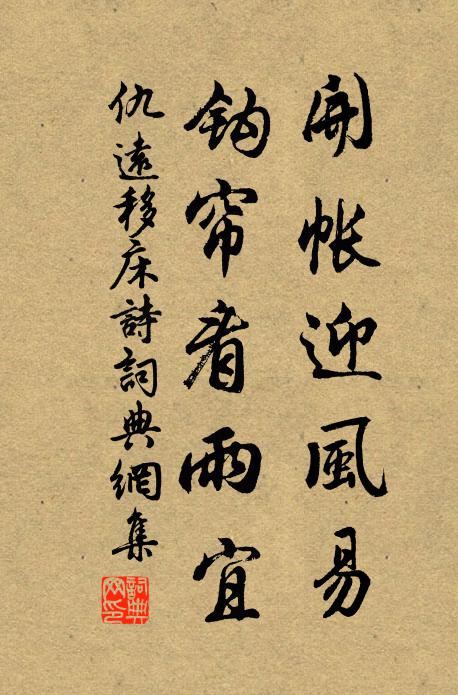 開帳迎風易
鈎帘看雨宜
仇遠移床詩詞典網集
詞典網印